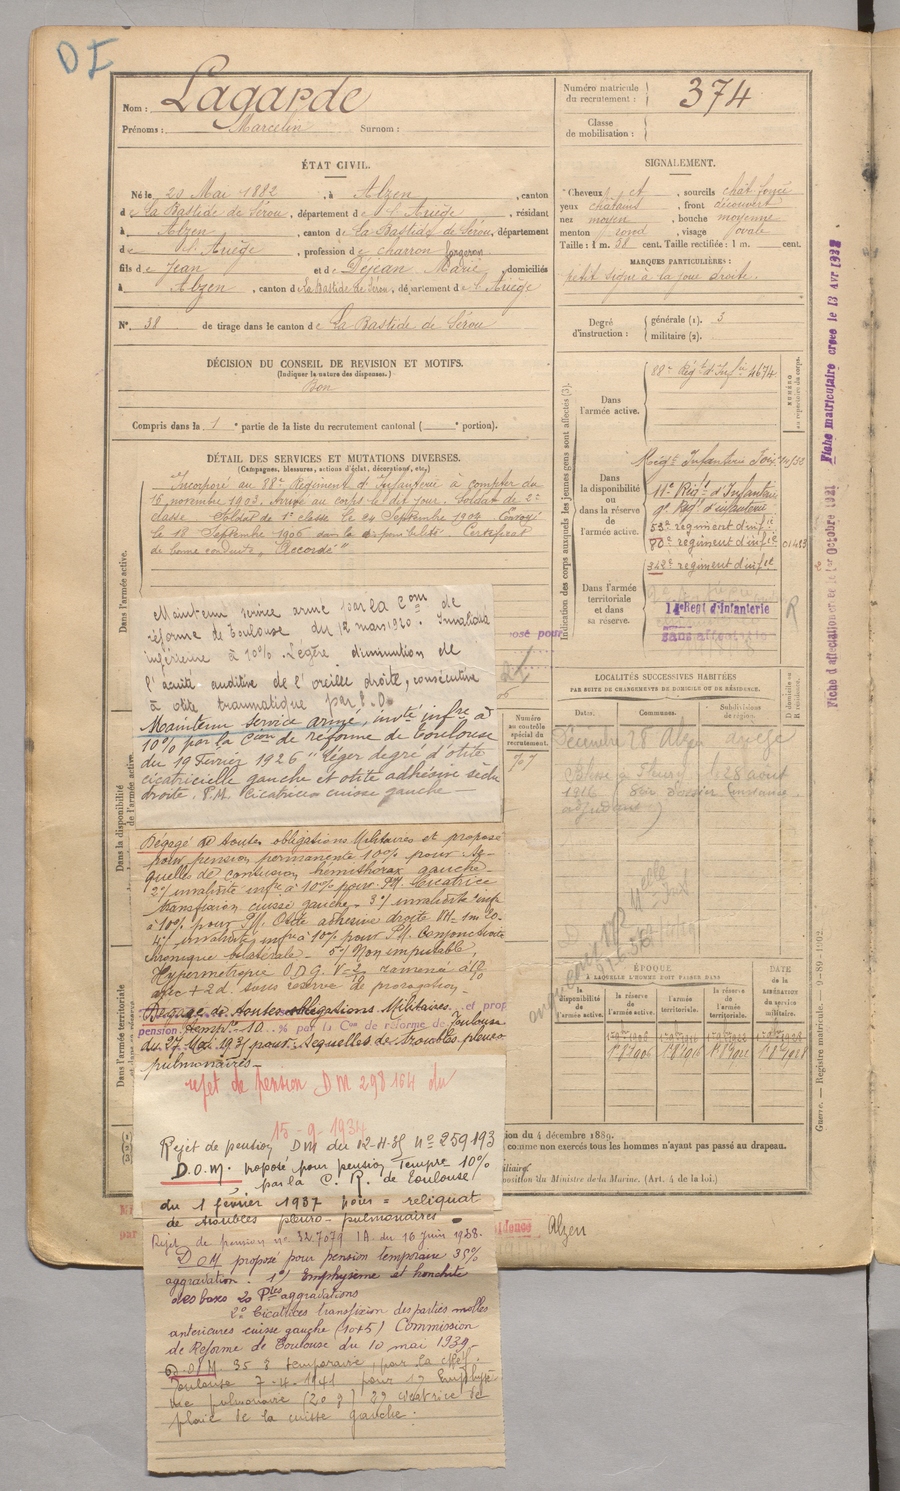 DI
Nom : Lagarde
Prénoms : Marcelin Surnom :
Numéro matricule
du recrutement : 374
Classe
de mobilisation :
ÉTAT CIVIL.
Né le 20 Mai 1882, à Alzen, canton
de La Bastide de Sérou, département de l'Ariège, résidant
à Alzen, canton de La Bastide de Sérou, département
de l'Ariège, profession de charron forgeron
fils de Jean et de Déjean Marie, domiciliés
à Alzen, canton de La Bastide de Sérou, département de l'Ariège
N° 38 de tirage dans le canton de La Bastide de Sérou
SIGNALEMENT.
Cheveux et sourcils chât foncé
yeux châtains, front découvert
nez moyen, bouche moyenne
menton rond, visage ovale
Taille : 1 m. 58 cent. Taille rectifiée : 1 m. cent.
MARQUES PARTICULIÈRES :
petit signe à la joue droite.
Degré
d'instruction :
générale (1). 3
militaire (2).
DÉCISION DU CONSEIL DE REVISION ET MOTIFS.
(Indiquer la nature des dispenses.)
Bon
Compris dans la 1e partie de la liste du recrutement cantonal ( e portion).
DÉTAIL DES SERVICES ET MUTATIONS DIVERSES.
(Campagnes, blessures, actions d'éclat, décorations, etc.)
Incorporé au 88e Régiment d'Infanterie à compter du
16 novembre 1903. Arrivé au corps le dit jour. Soldat de 2e
classe. Soldat de 1e classe le 24 Septembre 1904. Envoyé
le 18 Septembre 1906 dans la disponibilité. Certificat
de bonne conduite "Accordé"
Maintenu service armé par la Com de
réforme de Toulouse du 12 mars 1920. Invalidité
inférieure à 10%. Légère diminution de
l'acuité auditive de l'oreille droite, consécutive
à otite traumatique par E.O.
Maintenu service armé, invté infre à
10% par la Cion de réforme de Toulouse
du 19 Février 1926 "léger degré d'otite
cicatricielle gauche et otite adhésive sèche
droite. P.M. Cicatrice cuisse gauche —
Dégagé de toutes obligations Militaires et proposé
pour pension permanente 10% pour sé-
quelles de contusion hémithorax gauche -
2°/ invalidité infre à 10% pour P.M. Cicatrice
transfixion cuisse gauche. 3°/ invalidité infre
à 10% pour P.M. Otite adhésive droite
4°/ invalidité infre à 10% pour P.M. Conjonctivite
chronique bilatérale - 5°/ Non imputable,
Hypermétropie
avec + 2d. sous réserve de prorogation -
Dégagé de toutes obligations Militaires et prop
pension 10 % par la Con de réforme de Toulouse
du 27 Mai 1931 pour : séquelles de troubles pleuro
pulmonaires -
rejet de pension DM 298164 du
15-9-1934
Rejet de pension DM du 12-11-35 N° 259193
D.O.M. proposé pour pension Tempre 10%
par la C. R. de Toulouse
du 1 février 1937 pour = reliquat
de troubles pleuro-pulmonaires
Rejet de pension n° 327079 1A du 16 juin 1938.
DOM proposé pour pension temporaire 35%
aggravation. 1°/ Emphysème et bronchite
des bases 20 Ptes aggravations
2° Cicatrices transfixion des parties molles
antérieures cuisse gauche (10+5) Commission
de Réforme de Toulouse du 10 mai 1939.
D.O.M. 35 % temporaire, par la
Toulouse 7-4-1941 pour 1°
pulmonaire (20 %) 2° cicatrice de
plaie de la cuisse gauche.
Dans l'armée active.
Dans la disponibilité
de l'armée active.
Dans l'armée territoriale
Indication des corps auxquels les jeunes gens sont affectés (3).
NUMÉRO
au répertoire du corps.
Dans
l'armée active.
88e Régt d'Infie 4674
Dans
la disponibilité
ou
dans la réserve
de
l'armée active.
Régt Infanterie Foix
11e Régt d'Infanterie
9e Régt d'infanterie
53e régiment d'infie
80e régiment d'infie 01483
342e régiment d'infie
Dans l'armée
territoriale
et dans
sa réserve.
14e Regt d'Infanterie
sans affectation
R
LOCALITÉS SUCCESSIVES HABITÉES
PAR SUITE DE CHANGEMENTS DE DOMICILE OU DE RÉSIDENCE.
Dates. Communes. Subdivisions
de région. D domicile ou
R résidence.
Décembre 28 Alzen
Blessé à Fleury le 28 août
1916
Numéro
de contrôle
spécial du
recrutement.
ÉPOQUE
À LAQUELLE L'HOMME DOIT PASSER DANS
la
disponibilité
de
l'armée active.
la réserve
de
l'armée active.
l'armée
territoriale.
la réserve
de
l'armée
territoriale.
DATE
de la
LIBÉRATION
du service
militaire.
Fiche matriculaire créée le 13 Avr 1932
Fiche d'affectation créée le 1er Octobre 1921
Guerre. — Registre matricule. — 9-89-1902.
ion du 4 décembre 1889.
comme non exercés tous les hommes n'ayant pas passé au drapeau.
position du Ministre de la Marine. (Art. 4 de la loi.)
Alzen